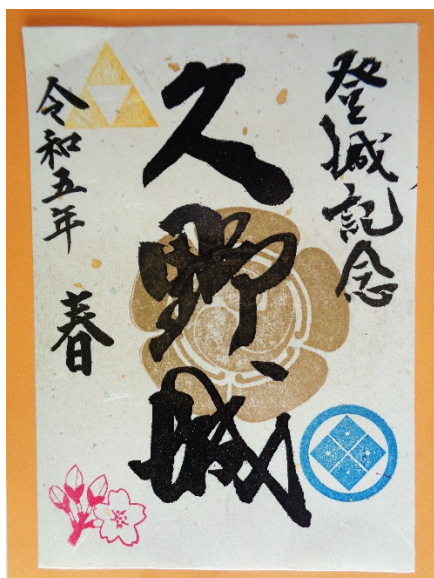 登城記念
久野城
令和五年 春